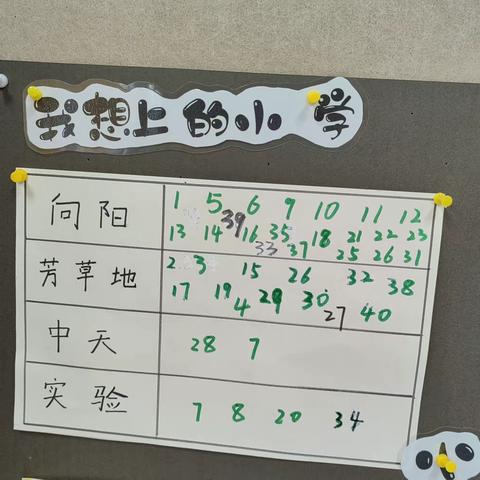 我想上的小学
向阳 1 5 6 9 10 11 12
13 14 39 16 35 18 21 22 23
33 37 25 26 31
芳草地 2 3 15 26 32 38
17 19 4 29 30 27 40
中天 28 7
实验 7 8 20 34